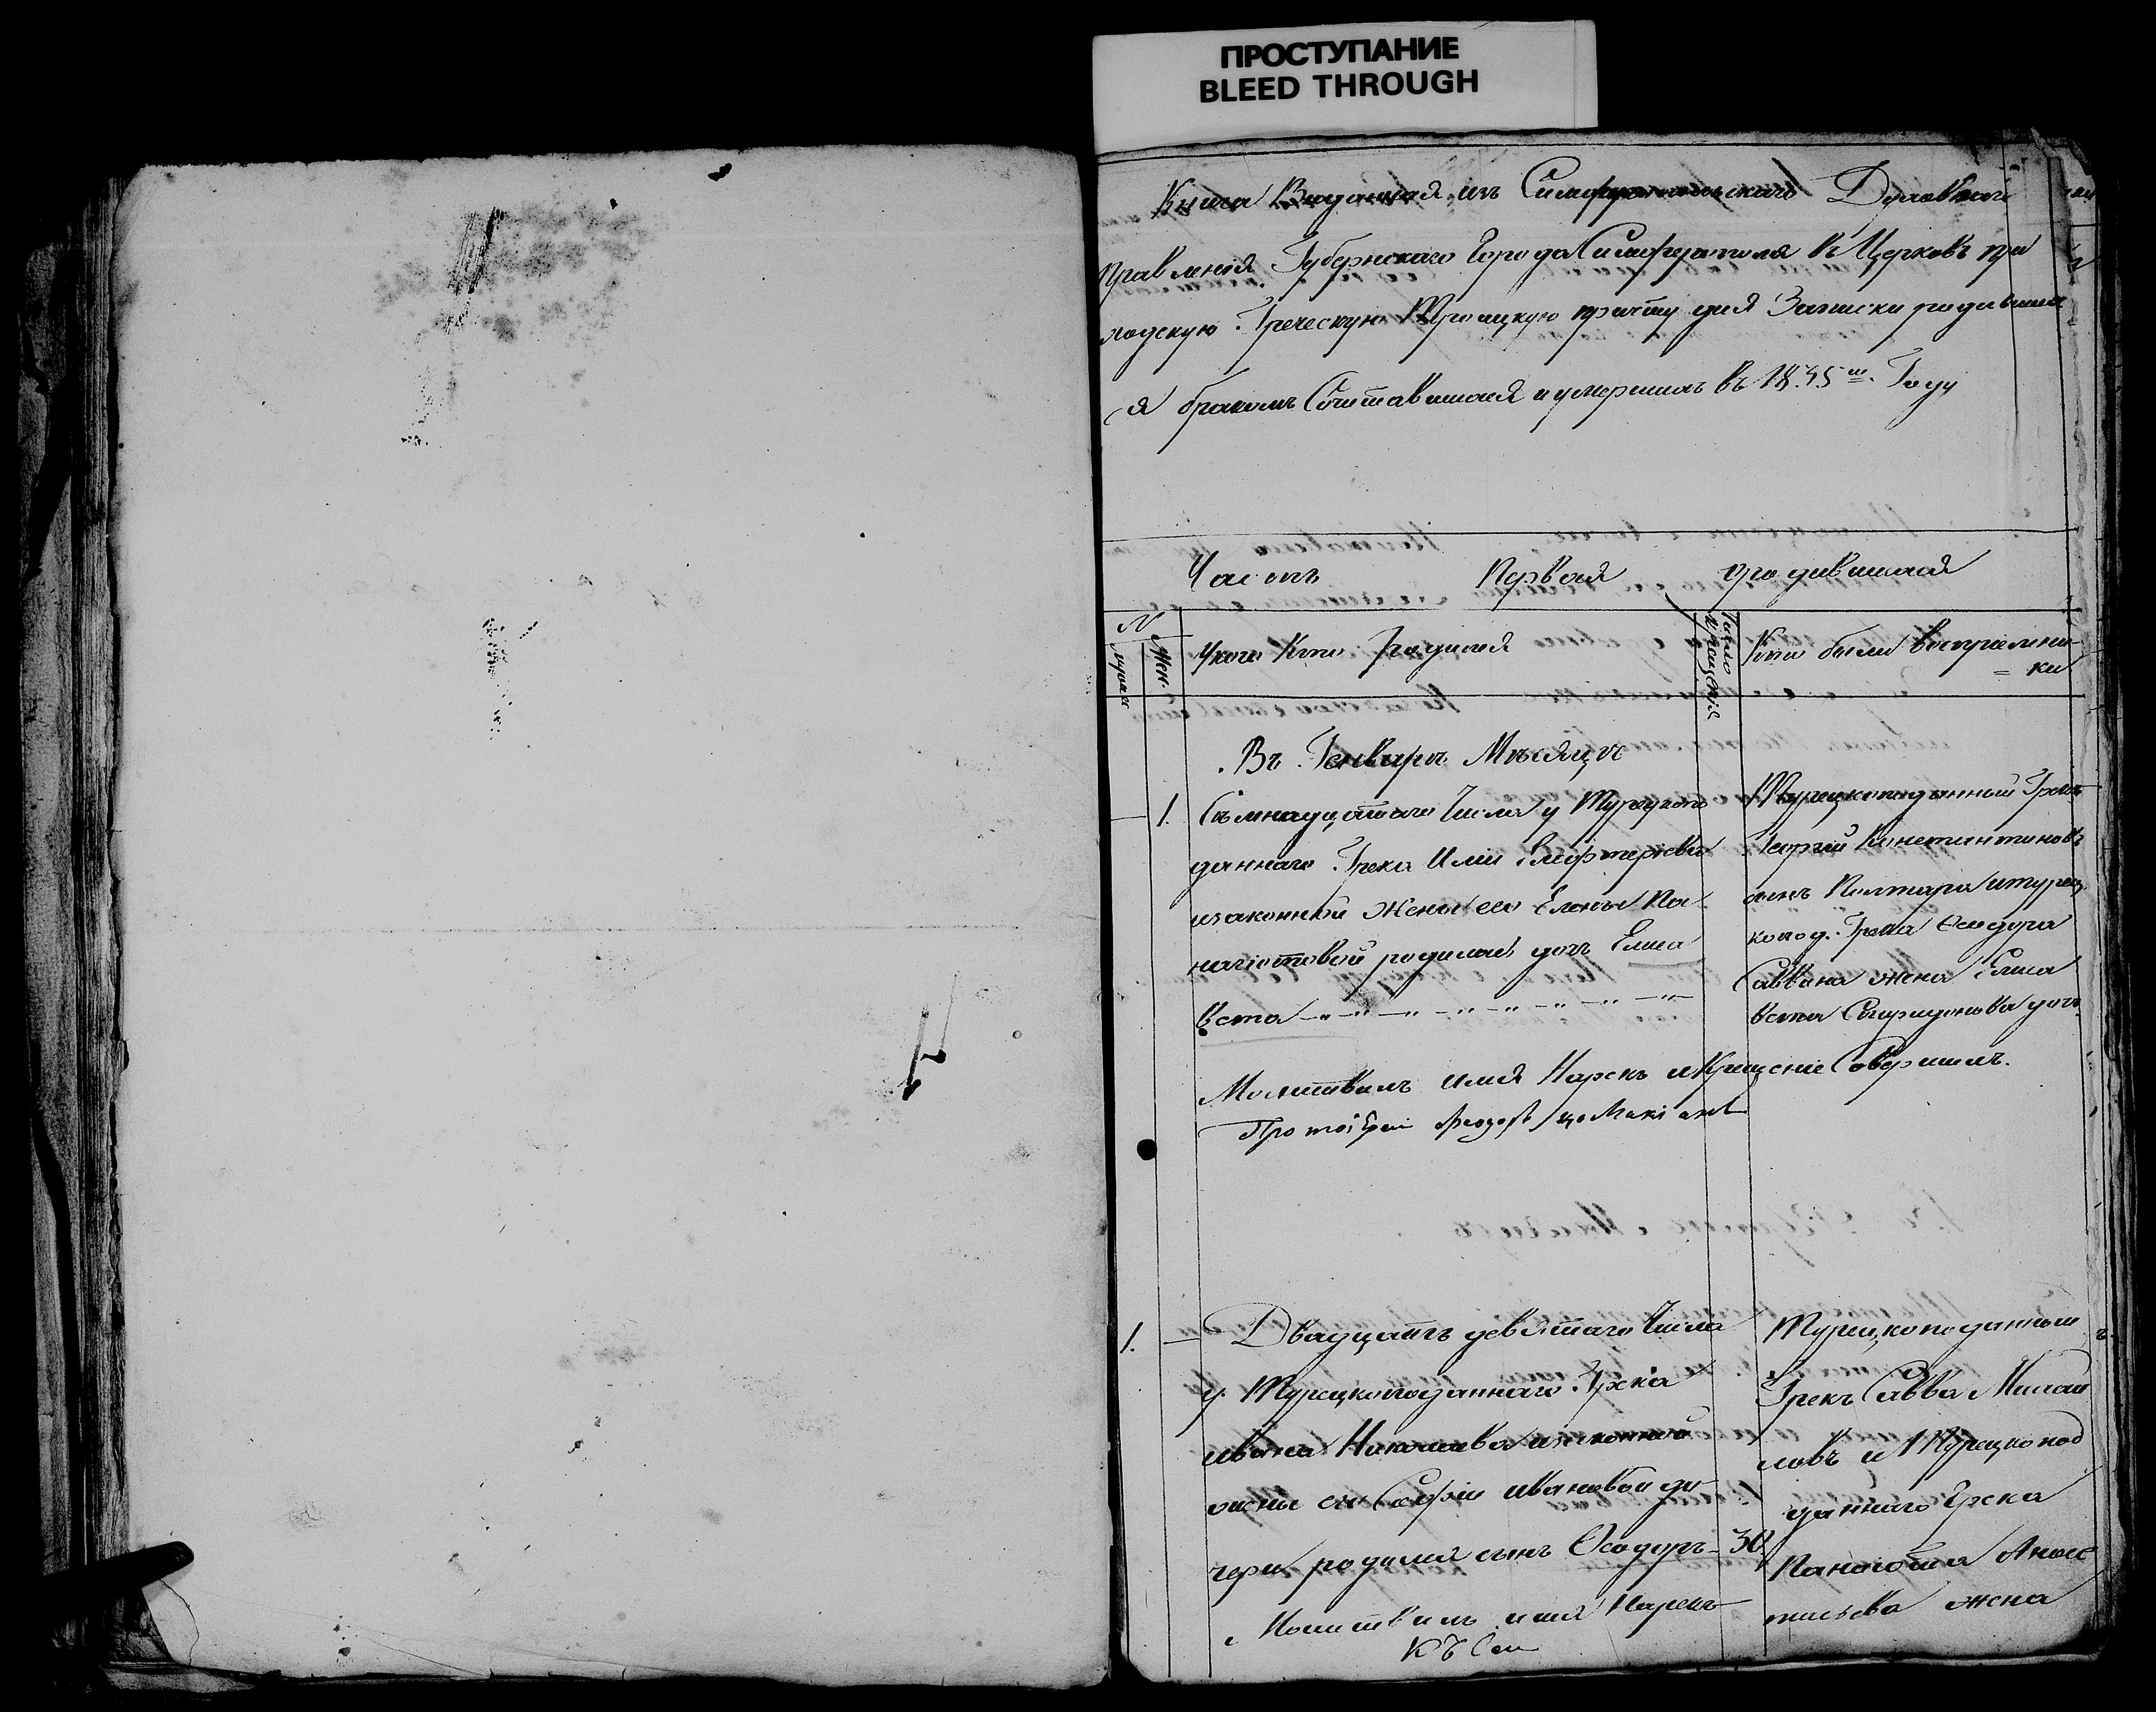 ПРОСТУПАНИЕ
BLEED THROUGH
Книга Выданная изъ Симферопольскаго Духовнаго
правленія Губернскаго города Симферополя въ Церковь при
ходскую Греческую Троицкую причту для Записки родивших
ся бракомъ Сочетавшихся и умершихъ въ 1835 м. Году
Часть Первая о родившихся
№
мужес
Жен.
У кого Кто родился
Число крещенія
Кто были восприемни-
= ки
Въ Генваре Месяце
1. Семнадцатаго Числа у Турецкопо
данного Грека Илии Елефтериева
и законной жены его Елены Па-
нагіотовой родилась дочь Елиса
вета
Турецкоподанный Грекъ
Георгий Константиновъ
сынъ и турец
копод. Грека Феодора
Саввана жена Елиса
вета Спиридонова дочь
Молитвилъ имя Нарекъ и Крещение Совершилъ.
Протоіерей
1. Двадцать девятаго Числа
у Турецкоподаннаго Грека
ивана Николаева и законной
жены его Софіи ивановой до-
чери родился сынъ Феодоръ - 30
Молитвилъ имя Нарекъ
Турецкоподанный
Грекъ Савва Михай
ловъ и Турецкопод
даннаго Грека
Панагіота Анас
тасьева жена